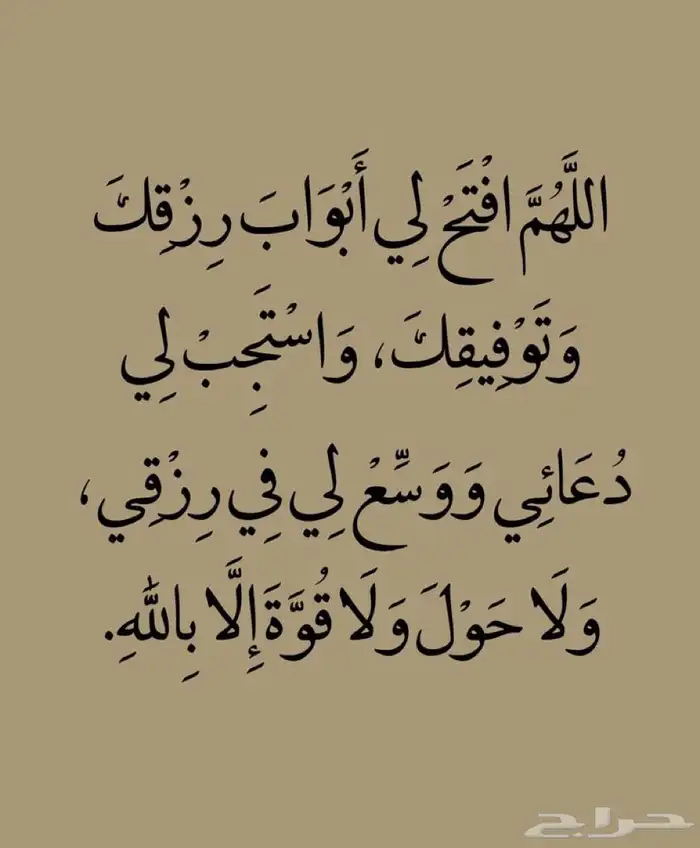 اللَّهُمَّ افْتَحْ لِي أَبْوَابَ رِزْقِكَ
وَتَوْفِيقِكَ، وَاسْتَجِبْ لِي
دُعَائِي وَوَسِّعْ لِي فِي رِزْقِي،
وَلَا حَوْلَ وَلَا قُوَّةَ إِلَّا بِاللَّهِ.
حراج